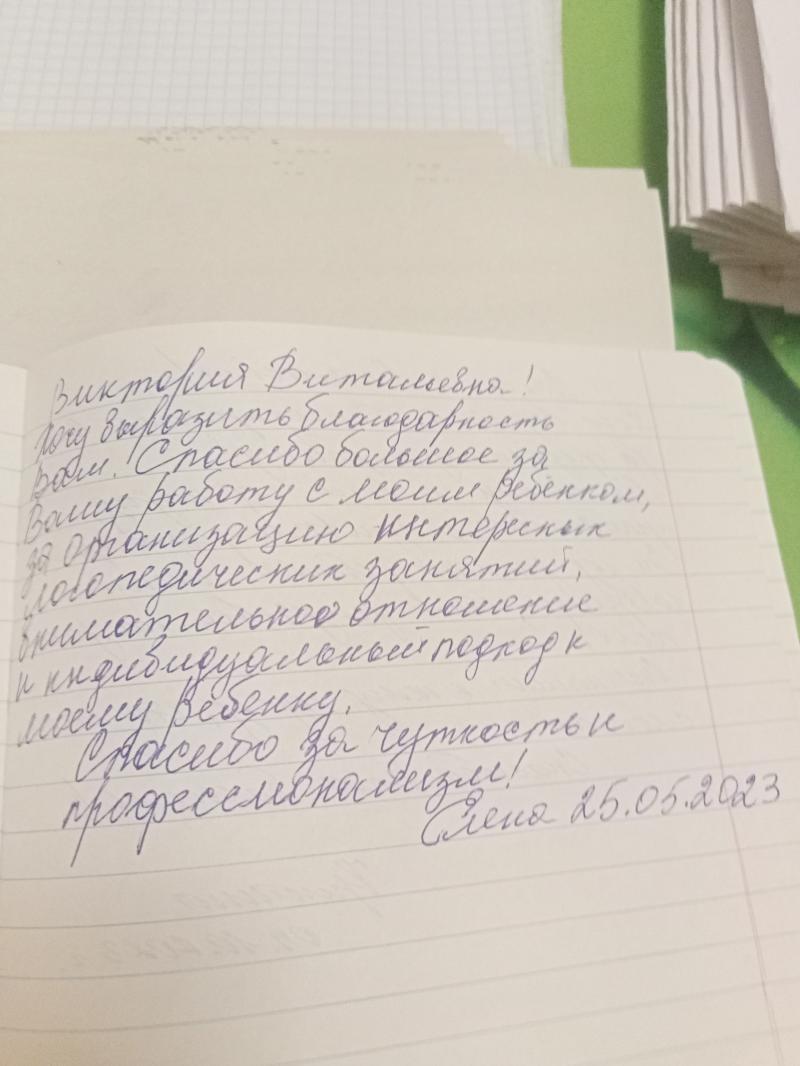 Виктория Витальевна!
Хочу выразить благодарность
Вам. Спасибо большое за
Вашу работу с моим ребенком,
за организацию интересных
логопедических занятий,
внимательное отношение
и индивидуальный подход к
моему ребенку.
Спасибо за чуткость и
профессионализм!
Елена 25.05.2023